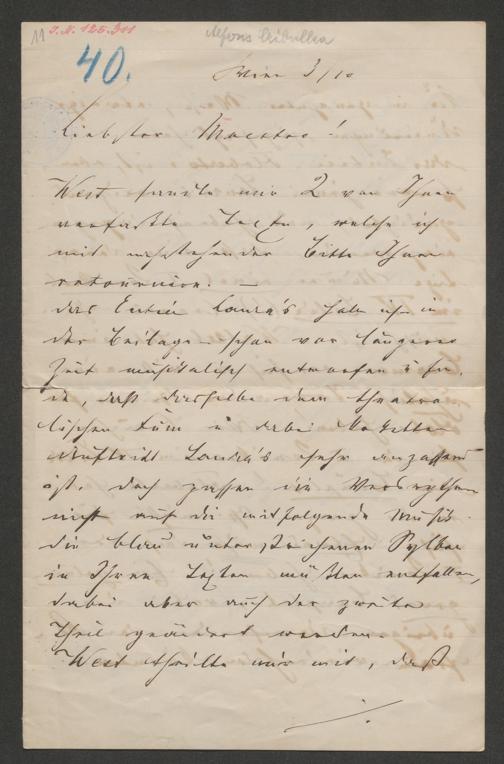 11 I.N. 125.311
Alfons Czibulka
40.
Wien 3/10
Liebster Maestro!
West sandte mir 2 von Ihnen
verfaßte Texte, welche ich
mit nachstehender Bitte Ihnen
retournire. —
das Entrée Laura's habe ich in
der Beilage schon vor längerer
Zeit musikalisch entworfen u fin-
de, daß dasselbe dem theatra-
lischen u dabei
Auftritt Laura's sehr anpassend
ist. doch passen die Versrythmen
nicht auf die mitfolgende Musik
die blau unterstrichenen Sylben
in Ihren Texten müßten entfallen,
dabei aber auch der zweite
Theil geändert werden.
West theilte mir mit, daß